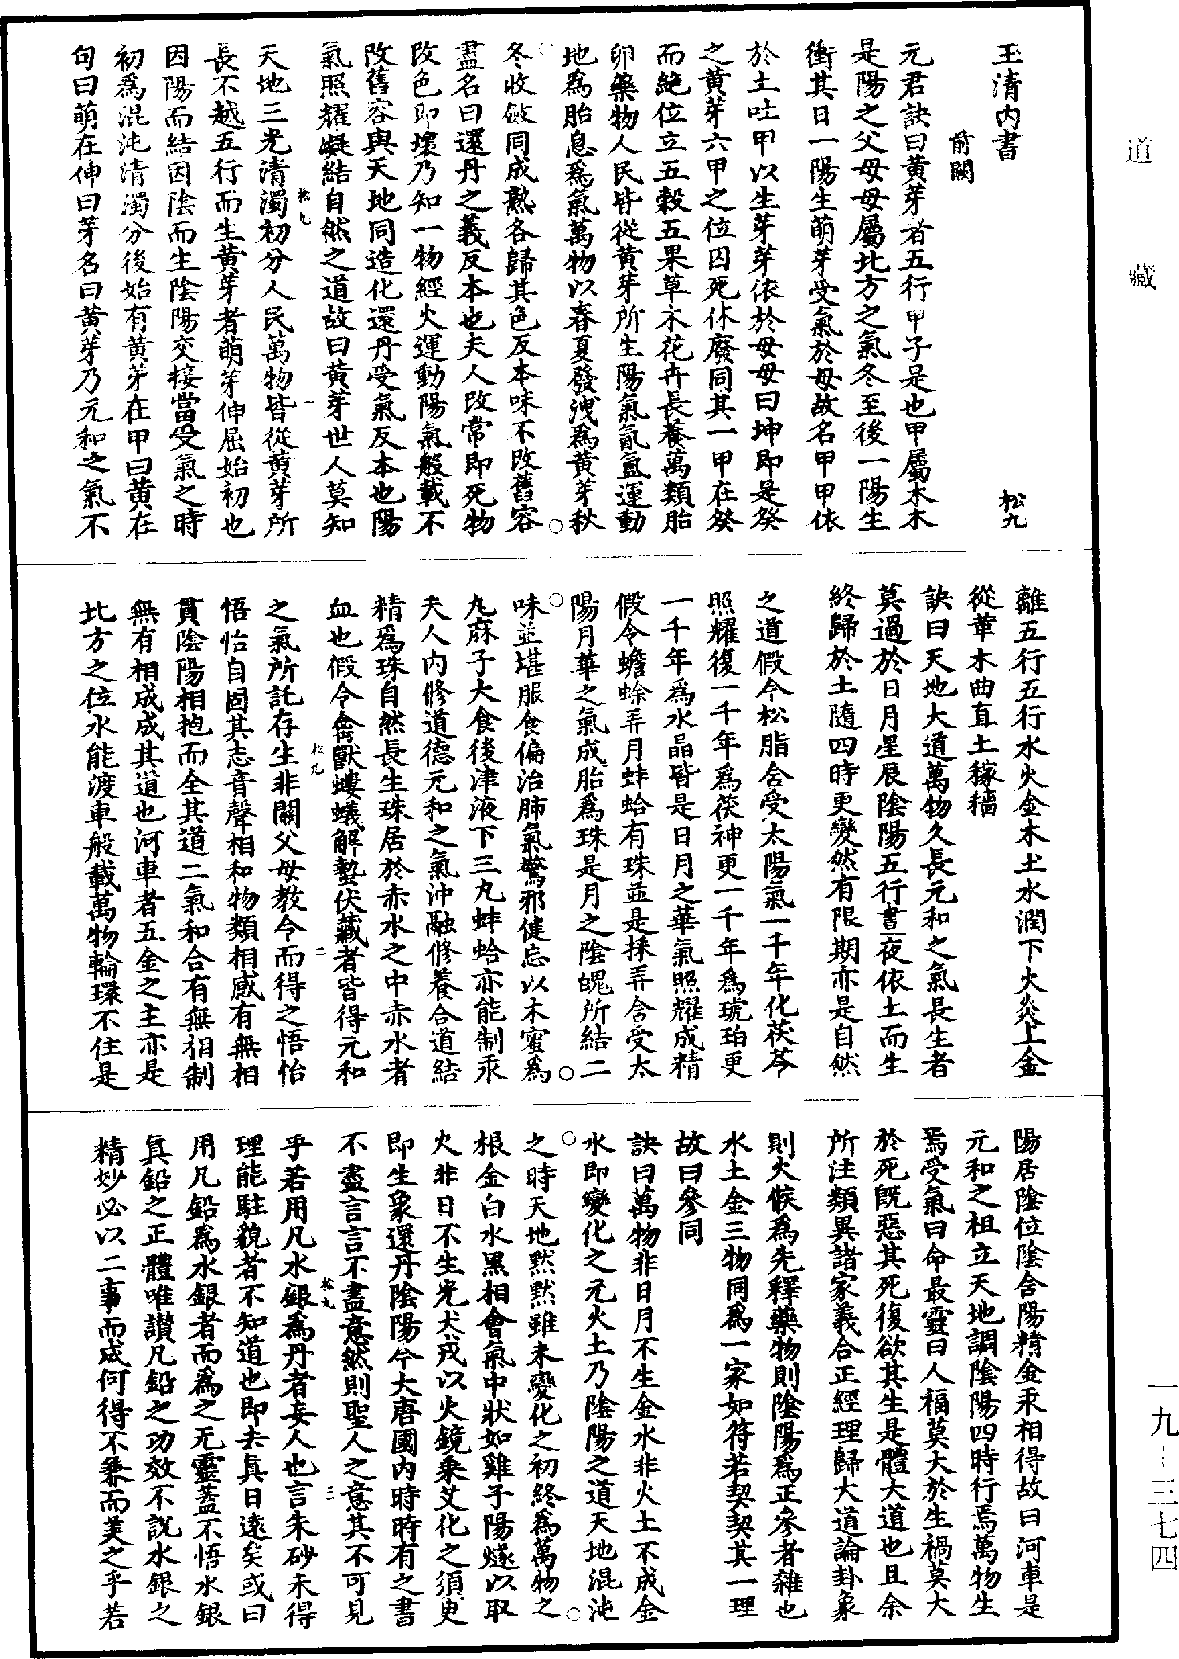 道藏
玉清內書
松九
前闕
元君訣曰黃芽者五行甲子是也甲屬木木
是陽之父母母屬北方之氣冬至後一陽生
衝其日一陽生萌芽受氣於母故名甲甲依
於土吐甲以生芽芽依於母母曰坤即是癸
之黃芽六甲之位囚死休廢同其一甲在癸
而絶位立五穀五果草木花卉長養萬類胎
卵藥物人民皆從黃芽所生陽氣氤氳運動
地爲胎息爲氣萬物以春夏發洩爲黃芽秋
冬收斂同成熟各歸其色反本味不改舊容
盡名曰還丹之義反本也夫人改常即死物
改色即壞乃知一物經火運動陽氣般載不
改舊容與天地同造化還丹受氣反本也陽
氣照耀凝結自然之道故曰黃芽世人莫知
松九
一
天地三光清濁初分人民萬物皆從黃芽所
長不越五行而生黃芽者萌芽伸屈始初也
因陽而結因陰而生陰陽交接當受氣之時
初爲混沌清濁分後始有黃芽在甲曰黃在
句曰萌在伸曰芽名曰黃芽乃元和之氣不
離五行五行水火金木土水潤下火炎上金
從革木曲直土稼穡
訣曰天地大道萬物久長元和之氣長生者
莫過於日月星辰陰陽五行晝夜依土而生
終歸於土隨四時更變然有限期亦是自然
之道假令松脂含受太陽氣一千年化茯苓
照耀復一千年爲茯神更一千年爲琥珀更
一千年爲水晶皆是日月之華氣照耀成精
假令蟾蜍弄月蚌蛤有珠並是採弄含受太
陽月華之氣成胎爲珠是月之陰魄所結二
味並堪服食偏治肺氣驚邪健忘以木蜜爲
丸麻子大食後津液下三丸蚌蛤亦能制汞
夫人內修道德元和之氣沖融修養合道結
精爲珠自然長生珠居於赤水之中赤水者
血也假令禽獸螻蟻解蟄伏藏者皆得元和
松九
二
之氣所託存生非關父母教令而得之悟怡
悟怡自固其志音聲相和物類相感有無相
貫陰陽相抱而全其道二氣和合有無相制
無有相成成其道也河車者五金之主亦是
北方之位水能渡車般載萬物輪環不住是
陽居陰位陰含陽精金汞相得故曰河車是
元和之祖立天地調陰陽四時行焉萬物生
焉受氣曰命最靈曰人福莫大於生禍莫大
於死旣惡其死復欲其生是體大道也且余
所注類異諸家義合正經理歸大道論卦象
則火候爲先釋藥物則陰陽爲正參者雜也
水土金三物同爲一家如符若契契其一理
故曰參同
訣曰萬物非日月不生金水非火土不成金
水即變化之元火土乃陰陽之道天地混沌
之時天地黙黙雖未變化之初終爲萬物之
根金白水黑相會氣中狀如雞子陽燧以取
火非日不生光犬戎以火鏡乘艾化之須臾
即生象還丹陰陽今大唐國內時時有之書
不盡言言不盡意然則聖人之意其不可見
松九
三
乎若用凡水銀爲丹者妄人也言朱砂未得
理能駐貌者不知道也即去眞日遠矣或曰
用凡鉛爲水銀者而爲之无靈蓋不悟水銀
眞鉛之正體唯讃凡鉛之功效不説水銀之
精妙必以二事而成何得不兼而美之乎若
一九-三七四